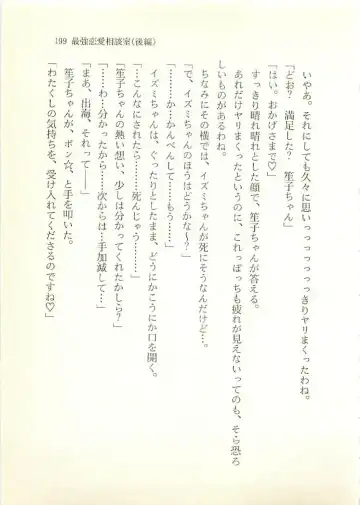 199 最強恋愛相談室(後編)
いやあ。それにしても久々に思いっっっっっっっきりヤりまくったわね。
「どお? 満足した? 笙子ちゃん」
「はい。おかげさまで♡」
すっきり晴れ晴れとした顔で、笙子ちゃんが答える。
あれだけヤりまくったというのに、これっぽっちも疲れが見えないってのも、そら恐ろ
しいものがあるわね。
ちなみにその横では、イズミちゃんが死にそうなんだけど…。
「で、イズミちゃんのほうはどうかな〜?」
「………か……かんべんして……もう……」
イズミちゃんは、ぐったりとしたまま、どうにかこうにか口を開く。
「…こんなにされたら………死んじゃう………」
「笙子ちゃんの熱い想い、少しは分かってくれたかしら?」
「……わ…分かったから……次からは…手加減して…」
「まあ、出海、それって――」
笙子ちゃんが、ポン☆、と手を叩いた。
「わたくしの気持ちを、受け入れてくださるのですね♡」